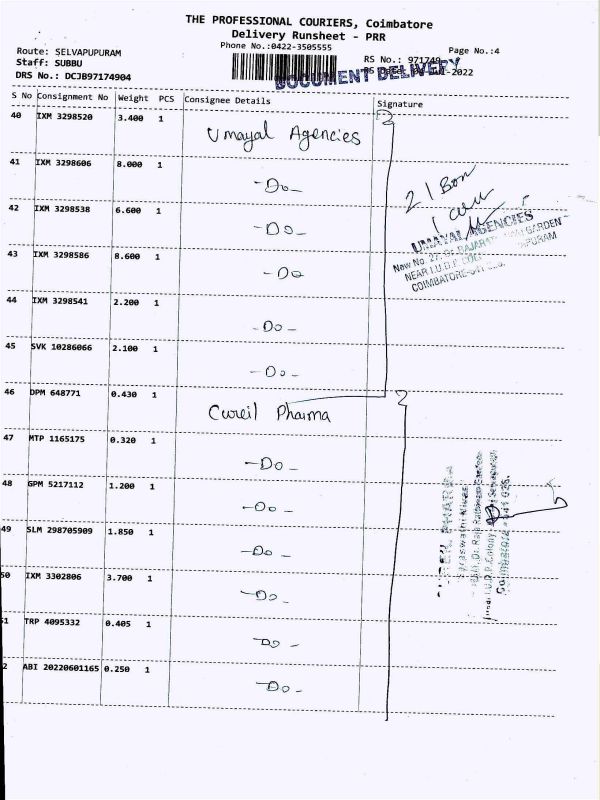 THE PROFESSIONAL COURIERS, Coimbatore
Delivery Runsheet - PRR
Phone No.:0422-3505555
Page No.:4
Route: SELVAPUPURAM
RS No.: 971749
Staff: SUBBU
DOCUMENT DELIVERY
-2022
DRS No.: DCJB97174904
S No Consignment No Weight PCS Consignee Details Signature
40 IXM 3298520 3.400 1 Umayal Agencies
41 IXM 3298606 8.000 1 -Do-
42 IXM 3298538 6.600 1 -Do-
43 IXM 3298586 8.600 1 -Do
44 IXM 3298541 2.200 1 -Do-
45 SVK 10286066 2.100 1 -Do-
46 DPM 648771 0.430 1 Cureil Pharma
47 MTP 1165175 0.320 1 -Do-
48 GPM 5217112 1.200 1 -Do-
49 SLM 298705909 1.850 1 -Do-
50 IXM 3302806 3.700 1 -Do-
1 TRP 4095332 0.405 1 -Do-
2 ABI 20220601165 0.250 1 -Do-
UMAYAL AGENCIES
New No. 27,
GARDEN
NEAR I.U.D.P. COL
PURAM
COIMBATORE
Saraswathi Nivas
I.U.D.P. Colony
Coimbatore